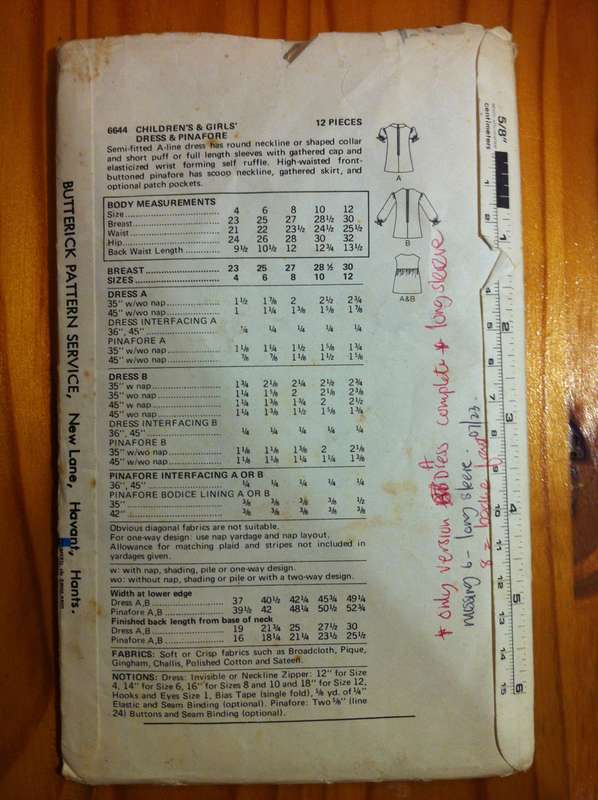 6644 CHILDREN'S & GIRLS' 12 PIECES
DRESS & PINAFORE
Semi-fitted A-line dress has round neckline or shaped collar
and short puff or full length sleeves with gathered cap and
elasticized wrist forming self ruffle. High-waisted front-
buttoned pinafore has scoop neckline, gathered skirt, and
optional patch pockets.
BODY MEASUREMENTS
Size 4 6 8 10 12
Breast 23 25 27 28½ 30
Waist 21 22 23½ 24½ 25½
Hip 24 26 28 30 32
Back Waist Length 9½ 10½ 12 12¾ 13½
BREAST 23 25 27 28½ 30
SIZES 4 6 8 10 12
DRESS A
35" w/wo nap 1½ 1⅞ 2 2½ 2¾
45" w/wo nap 1 1¼ 1⅜ 1⅝ 1⅞
DRESS INTERFACING A
36", 45" ¼ ¼ ¼ ¼ ¼
PINAFORE A
35" w/wo nap 1⅛ 1¼ 1½ 1⅝ 1¾
45" w/wo nap ⅞ ⅞ 1⅛ 1½ 1⅝
DRESS B
35" w nap 1¾ 2⅛ 2¼ 2½ 2¾
35" wo nap 1¼ 1⅝ 2 2⅛ 2⅜
45" w nap 1¼ 1⅜ 1¾ 2 2½
45" wo nap 1¼ 1⅜ 1½ 1⅝ 1¾
DRESS INTERFACING B
36", 45" ¼ ¼ ¼ ¼ ¼
PINAFORE B
35" w/wo nap 1⅛ 1⅜ 1⅜ 2 2⅛
45" w/wo nap 1⅛ 1⅛ 1¼ 1¼ 1⅜
PINAFORE INTERFACING A OR B
36", 45" ¼ ¼ ¼ ¼ ¼
PINAFORE BODICE LINING A OR B
35" ⅜ ⅜ ⅜ ⅜ ½
42" ⅜ ⅜ ⅜ ⅜ ⅜
Obvious diagonal fabrics are not suitable.
For one-way design: use nap yardage and nap layout.
Allowance for matching plaid and stripes not included in
yardages given.
w: with nap, shading, pile or one-way design.
wo: without nap, shading or pile or with a two-way design.
Width at lower edge
Dress A,B 37 40½ 42¼ 45¾ 49¼
Pinafore A,B 39½ 42 48¼ 50½ 52¾
Finished back length from base of neck
Dress A,B 19 21¾ 25 27½ 30
Pinafore A,B 16 18¼ 21¼ 23½ 25½
FABRICS: Soft or Crisp fabrics such as Broadcloth, Pique,
Gingham, Challis, Polished Cotton and Sateen.
NOTIONS: Dress: Invisible or Neckline Zipper: 12" for Size
4, 14" for Size 6, 16" for Sizes 8 and 10 and 18" for Size 12,
Hooks and Eyes Size 1, Bias Tape (single fold), ⅛ yd. of ¼"
Elastic and Seam Binding (optional). Pinafore: Two ⅝" (line
24) Buttons and Seam Binding (optional).
A
B
A&B
BUTTERICK PATTERN SERVICE, New Lane, Havant, Hants.
* only version A Dress complete + long sleeve
missing 6 - long sleeve. 07/23
8 = bodice front
5/8"
centimeters
1 2 3 4 5 6
1 4 5 6 7 8 9 10 11 12 13 14 15